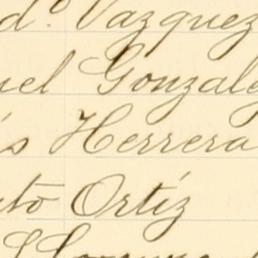 do. Vazquez
uel Gonzalez
s Herrera
to Ortíz